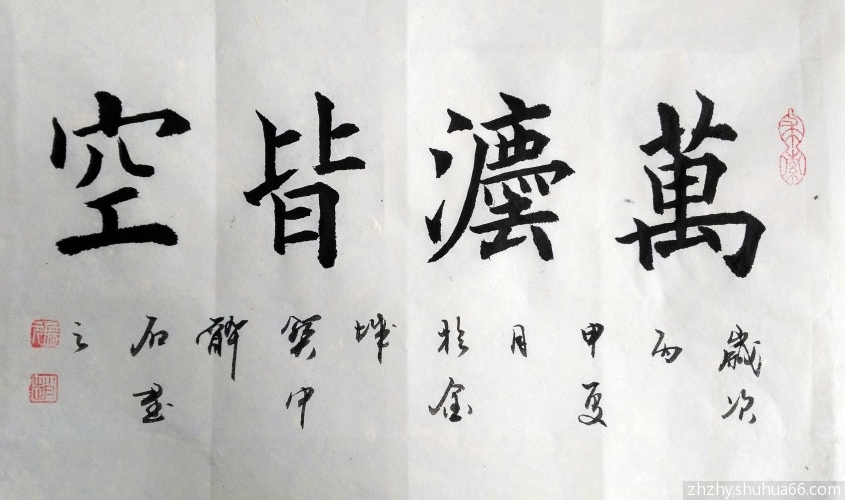 萬灋皆空
歲次
丙
申夏
月
於金
城
中
石
之
zhzhy.shuhua66.com